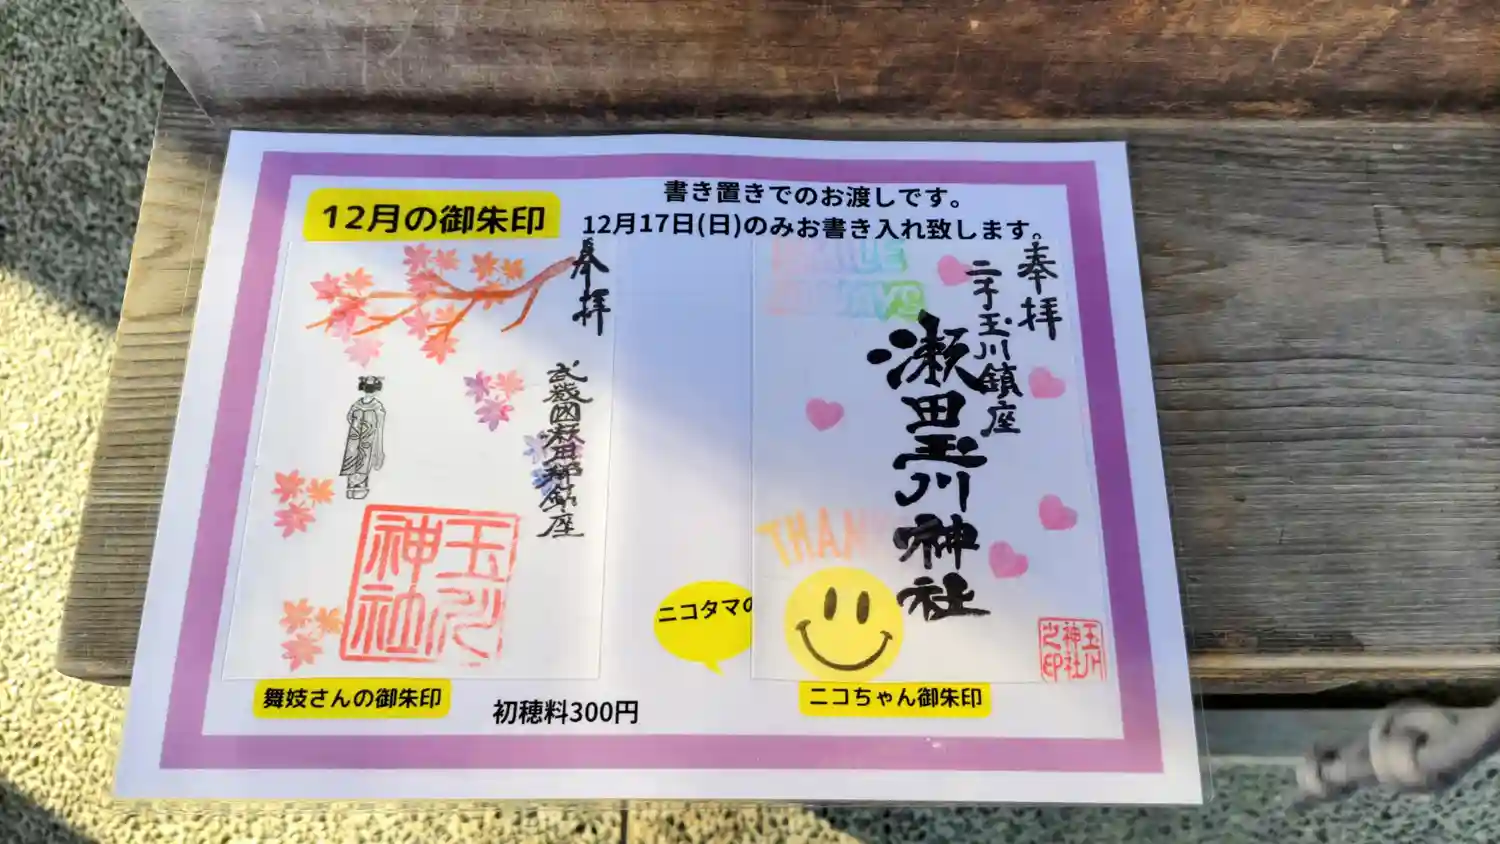 12月の御朱印
書き置きでのお渡しです。
12月17日(日)のみお書き入れ致します。
奉拝
武蔵国瀬田郷鎮座
玉川
神社
舞妓さんの御朱印
初穂料300円
ニコタマの
奉拝
二子玉川鎮座
瀬田玉川神社
THAN
玉川
神社
之印
ニコちゃん御朱印